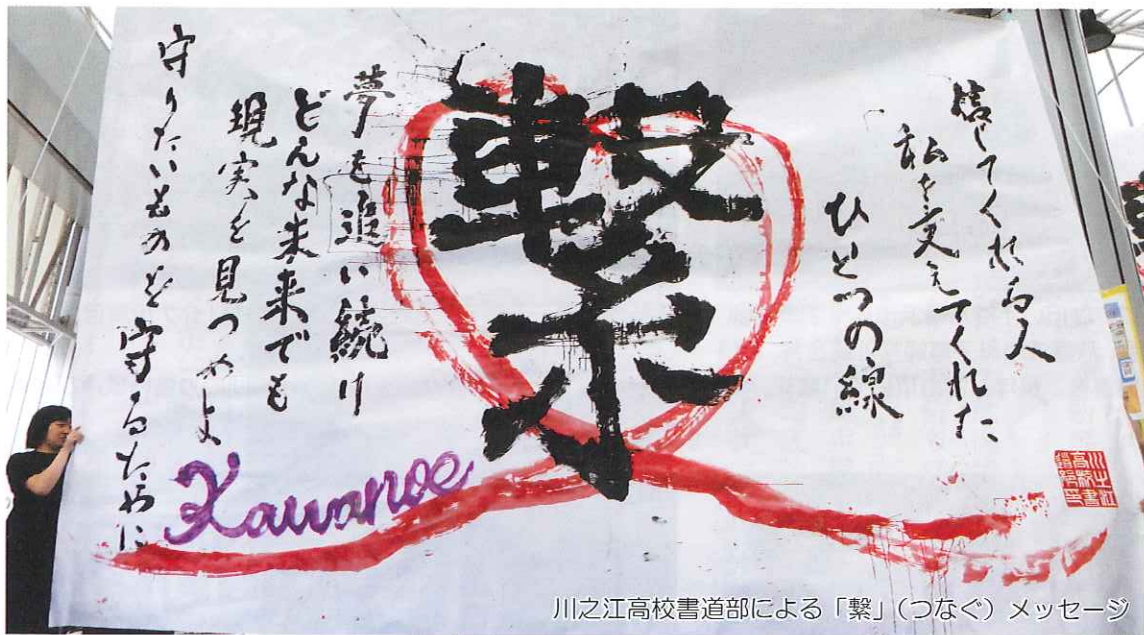 信じてくれる人
私を支えてくれた
ひとつの線
繋
夢を追い続け
どんな未来でも
現実を見つめよ
守りたいものを守るために
Kawanoe
川之江高校書道部による「繋」(つなぐ)メッセージ